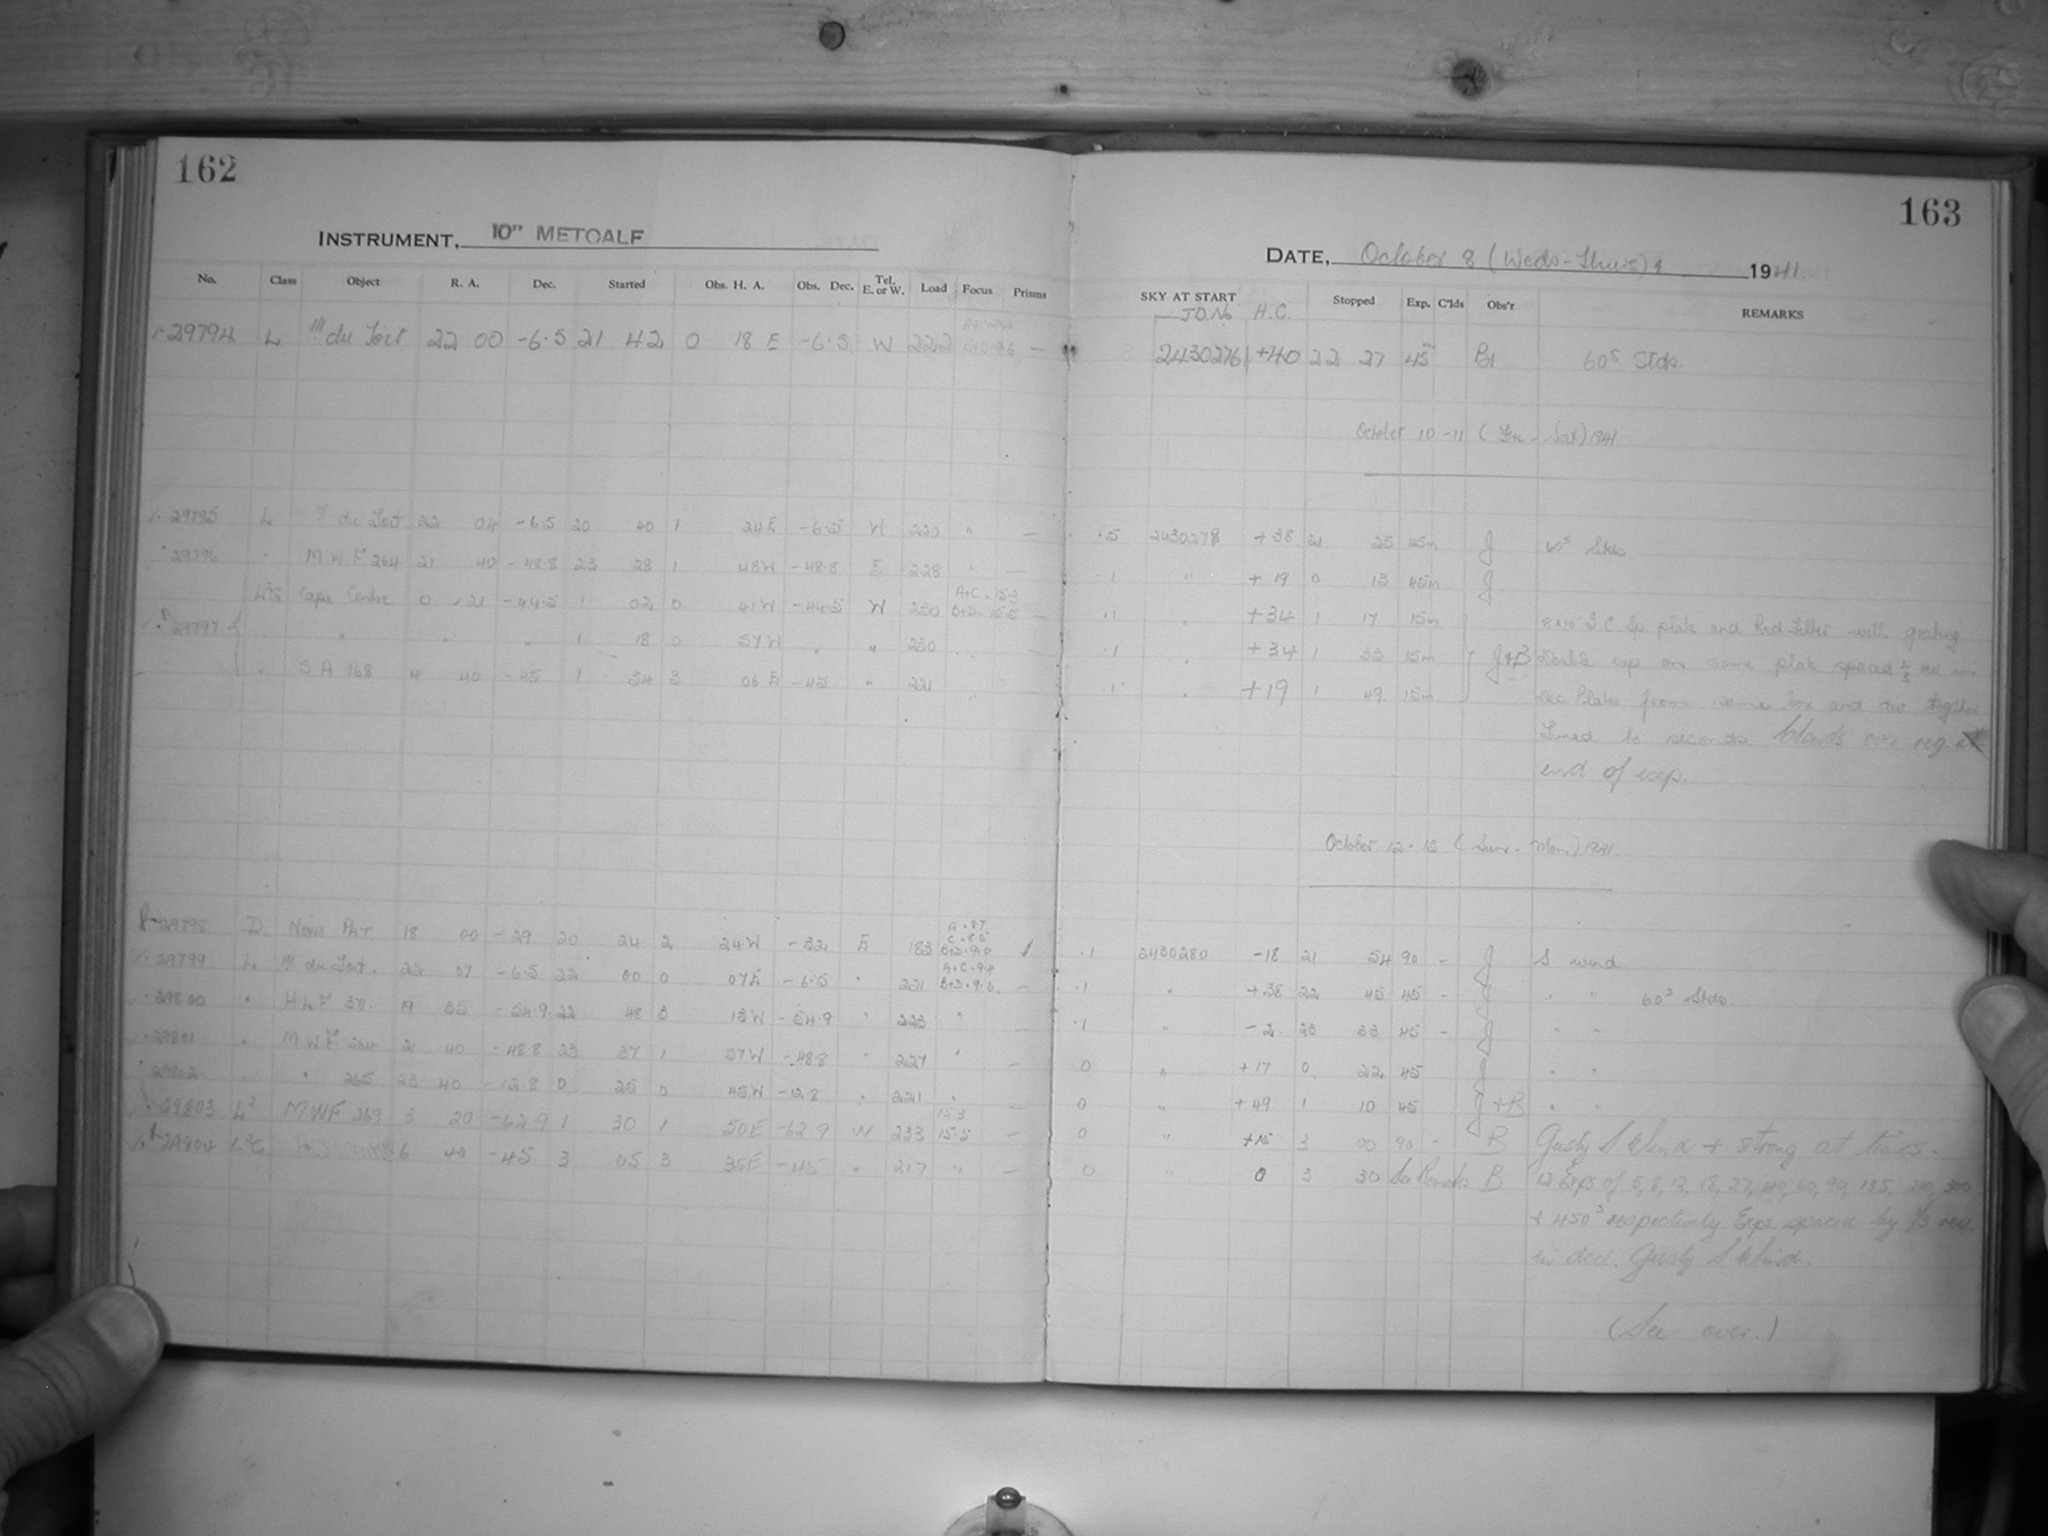 162
163
INSTRUMENT, 10" METCALF
DATE, October 8 (Weds-Thurs) 9 1941.
No. Class Object R. A. Dec. Started Obs. H. A. Obs. Dec. Tel. E. or W. Load Focus Prisms SKY AT START Stopped Exp. C'lds Obs'r REMARKS
J.D. No H.C.
29794 L du Toit 22 00 -6.5 21 42 0 18 E -6.5 W 222 — 2430276 +40 22 27 45 60s Stds.
October 10-11 (Fri - Sat) 1941
29795 L du Toit 22 04 -6.5 20 40 1 24 E -6.5 W 220 " — .5 2430278 +38 21 25 45m J 60s Stds
29796 " M W F 264 21 40 -48.8 23 28 1 48 W -48.8 E 228 " — .1 " +19 0 13 45m J
Cape Centre 0 21 -44.5 1 02 0 41 W -44.5 W 230 A+C = 15.3 B+D = 15.5 — .1 " +34 1 17 15m plate and Red Filter with grating
29797 " " " " 1 18 0 57 W " " 230 .1 " +34 1 33 15m J+B Double exp on same plate spaced 1/3 rev in
" S A 168 4 40 -45 1 34 3 06 E -45 " 221 .1 " +19 1 49 15m dec Plates from same box and dev together
Timed to seconds Clouds over reg. at
end of exp.
October 12-13 (Sun - Mon) 1941.
29798 D Nova Pup. 18 00 -29 20 24 2 24 W -32 E 183 A = 8.7 C = 8.5 B+D = 9.0 .1 2430280 -18 21 54 90 - J S. wind
29799 L du Toit. 22 07 -6.5 22 00 0 07 E -6.5 " 221 A+C = 9.4 B+D = 9.6 — .1 " +38 22 45 45 - J " " 60s Stds.
29800 " H L F 311 19 35 -54.9 22 48 3 13 W -54.9 " 223 " — .1 " -2 23 33 45 - J " "
29801 " M W F 264 21 40 -48.8 23 37 1 57 W -48.8 " 227 " — 0 " +17 0 22 45 J " "
29802 " " 265 23 40 -12.8 0 25 0 45 W -12.8 " 221 " — 0 " +49 1 10 45 J+B " "
29803 L2 MWF 269 3 20 -62.9 1 30 1 50 E -62.9 W 233 15.3 15.5 — 0 " +15 3 00 90 - B Gusty S Wind + strong at times.
2A804 6 40 -45 3 05 3 35 E -45 " 217 " — 0 " 0 3 30 See Remarks B 12 Exps of 5, 8, 12, 18, 27, 40, 60, 90, 135, 200, 300
+ 450s respectively Exps. spaced by 1/3 rev
in decl. Gusty S Wind.
(See over.)